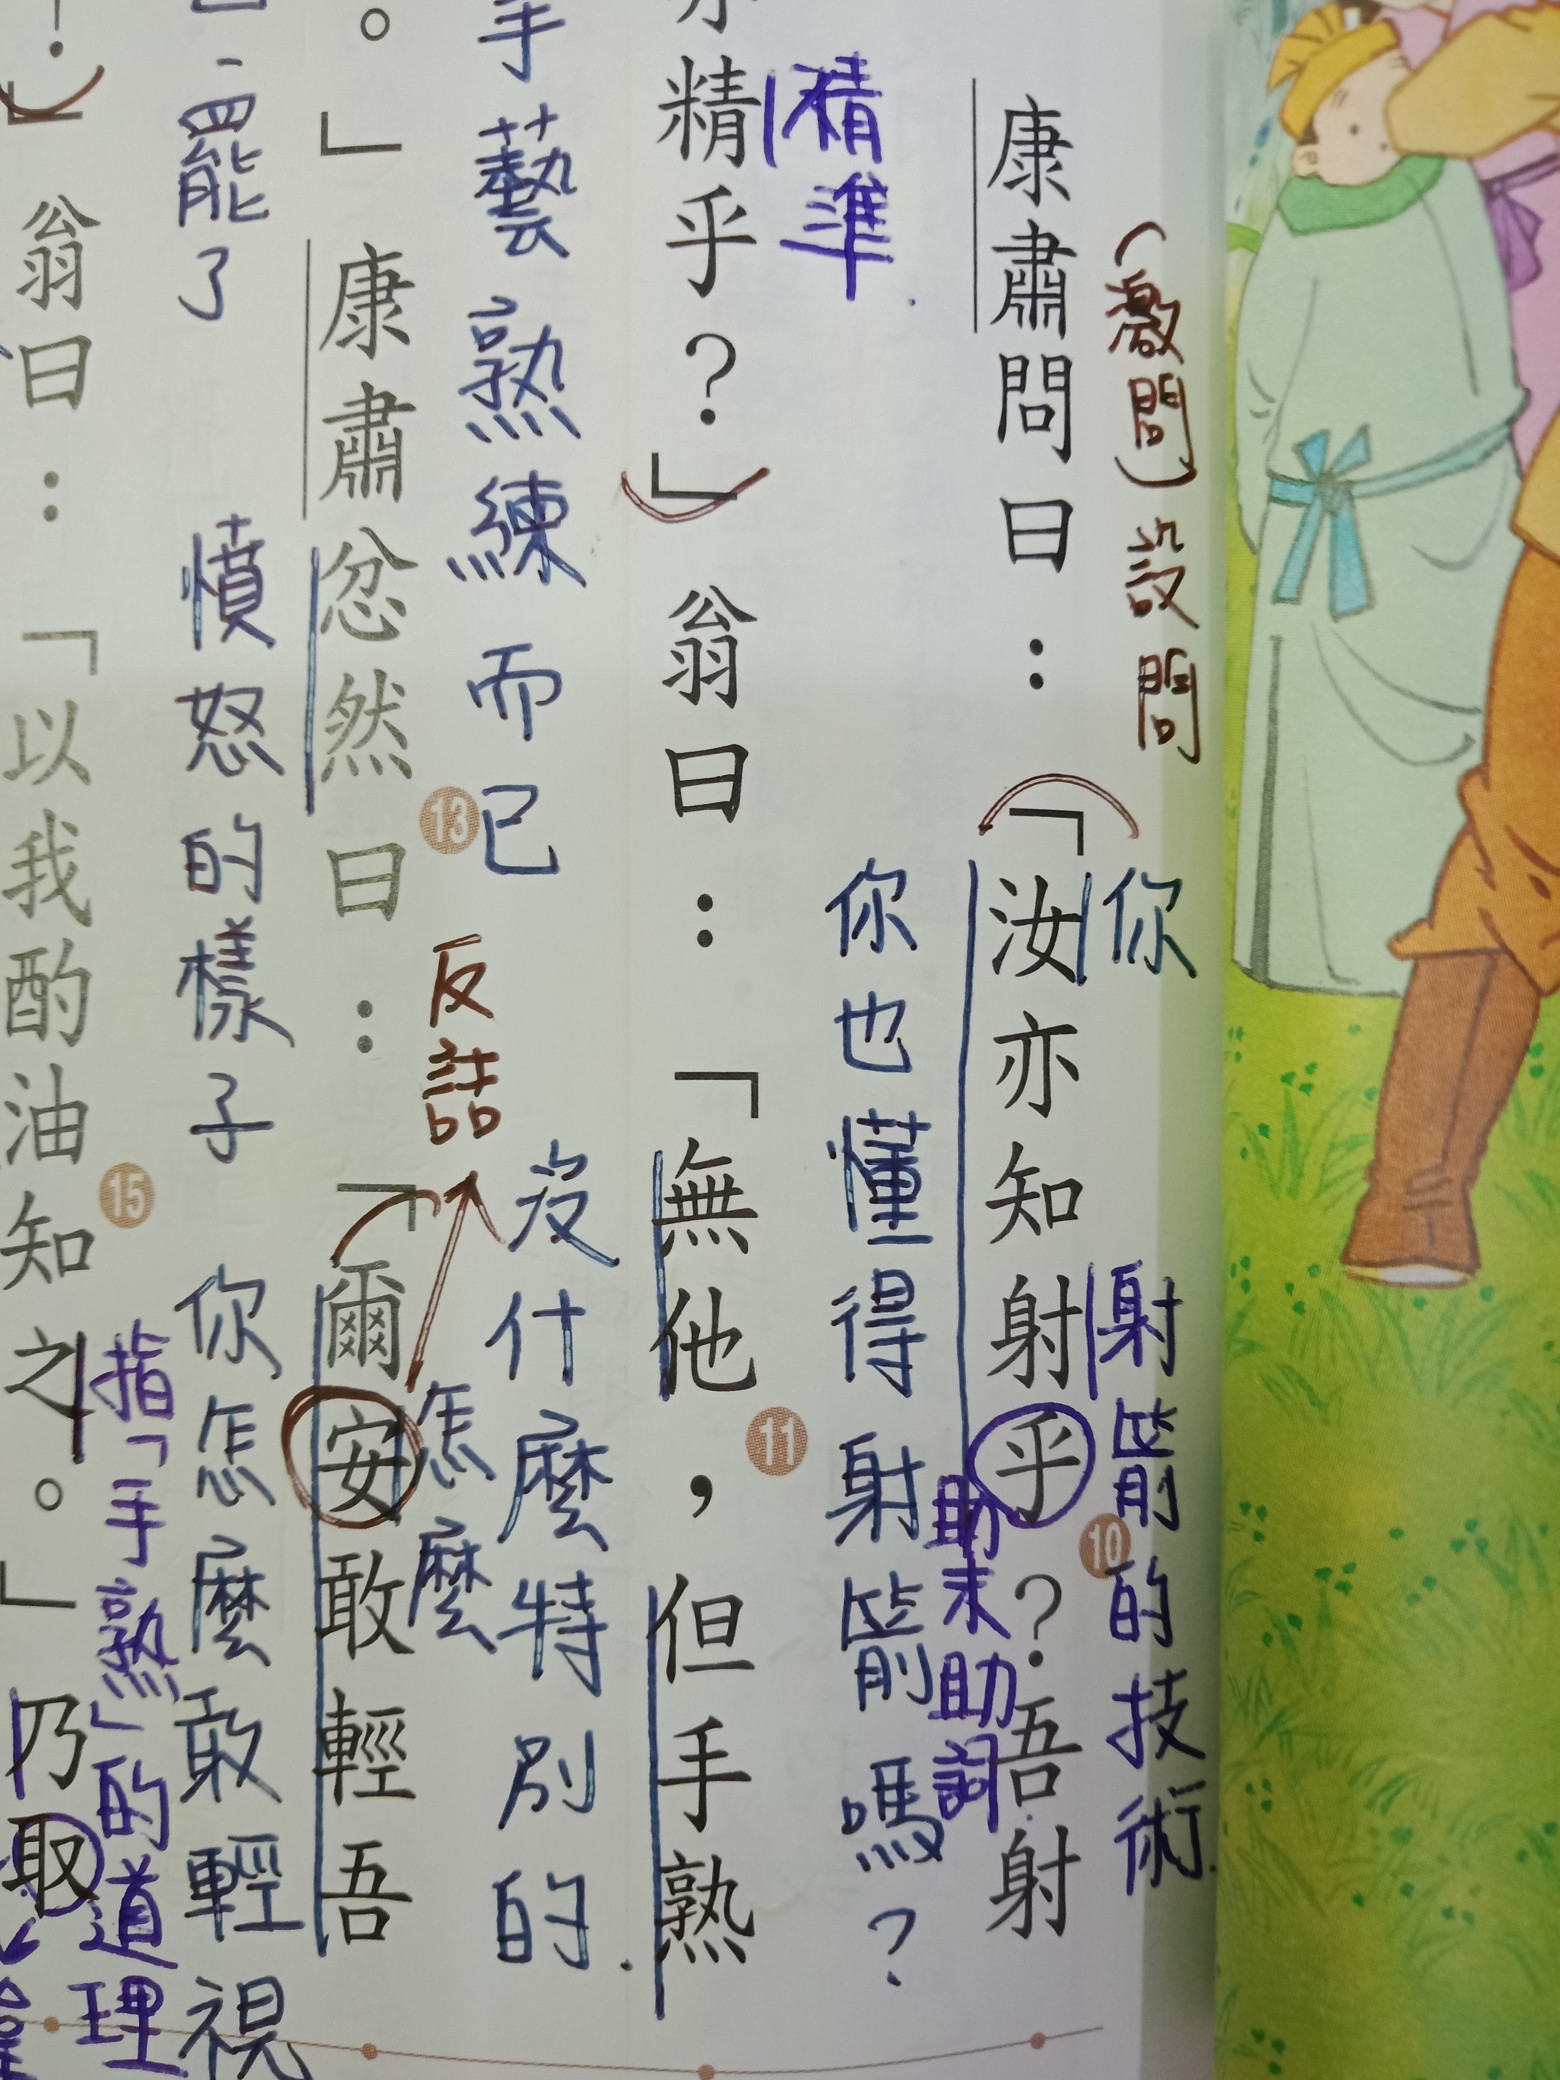 (激問)設問
你
射箭的技術
康肅問曰：「汝亦知射乎？吾射
10
助末助詞
精準
你也懂得射箭嗎？
精乎？」翁曰：「無他，但手熟
11
手藝熟練而已
沒什麼特別的
13
反詰
怎麼
。」康肅忿然曰：「爾安敢輕吾
罷了
憤怒的樣子
你怎麼敢輕視
15
指「手熟」的道理
」翁曰：「以我酌油知之。」乃取